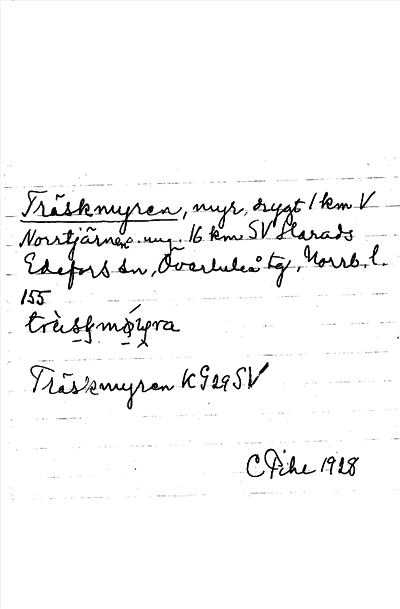 Träskmyren, myr, drygt 1 km V
Norrtjärnen. 16 km SV Harads
Edefors sn, Överluleå tg, Norrb. l.
155
Träskmyren KG29SV
C Pihl 1928